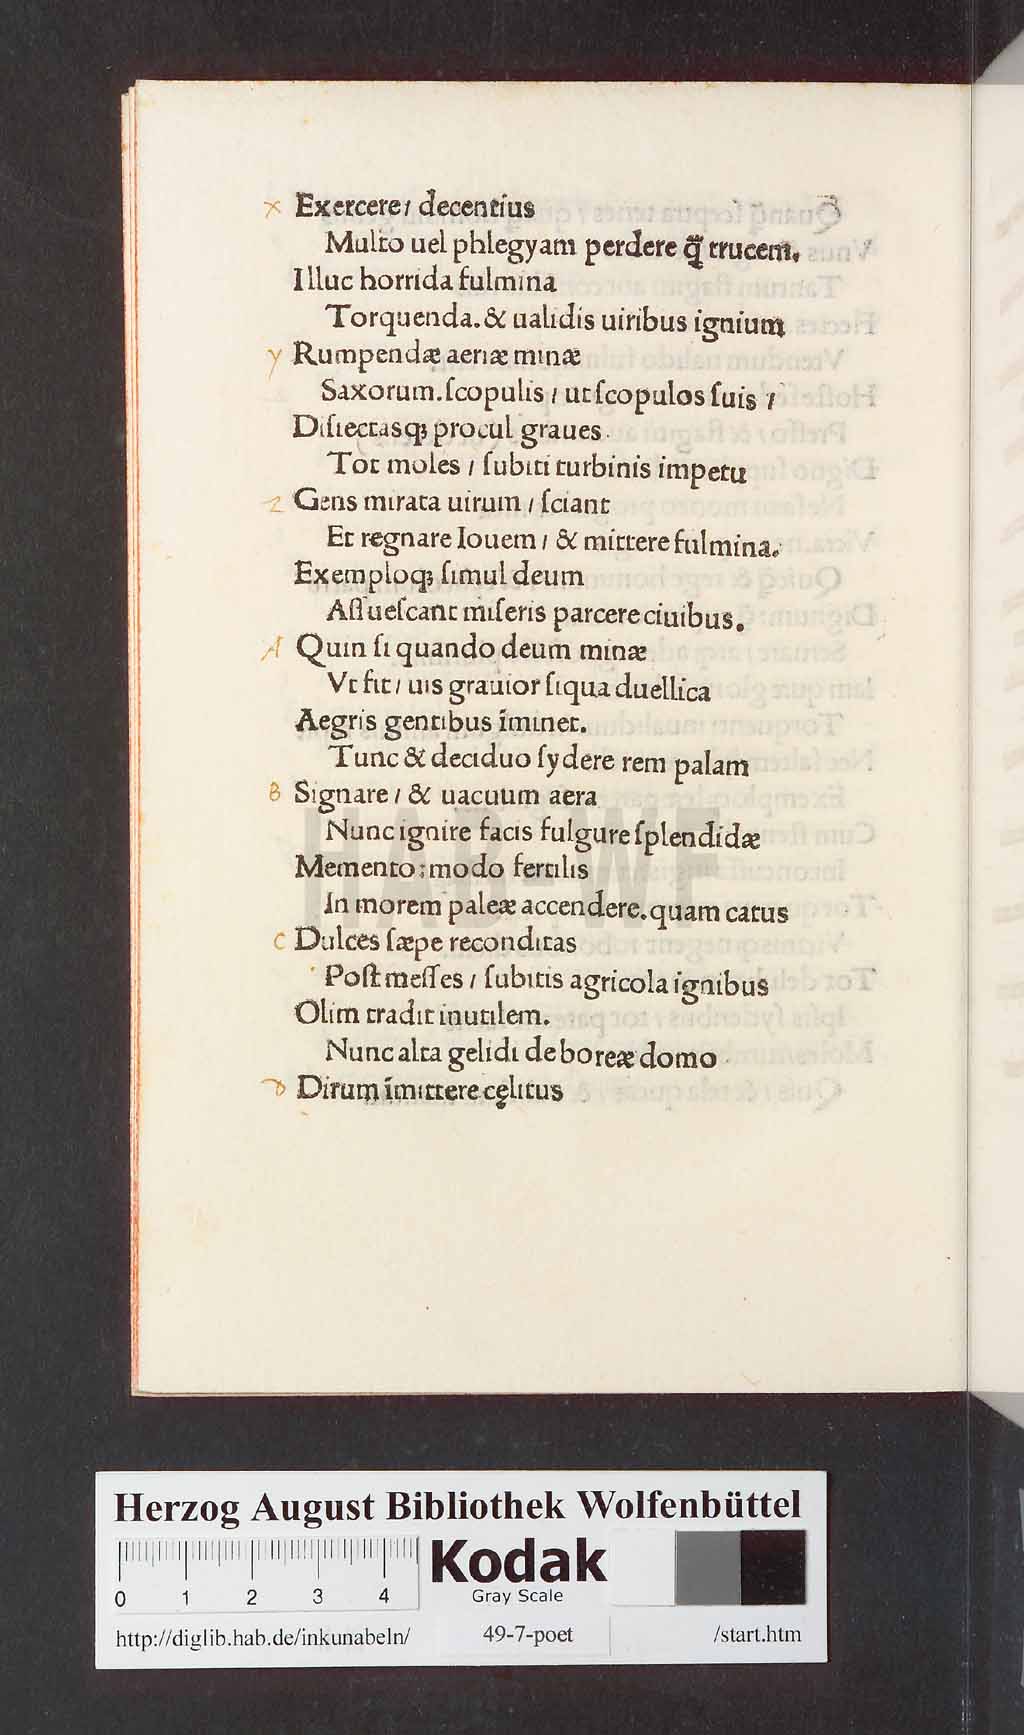 x Exercere / decentius
Multo uel phlegyam perdere q̃ trucem.
Illuc horrida fulmina
Torquenda. & ualidis uiribus ignium
y Rumpendæ aeriæ minæ
Saxorum. ſcopulis / ut ſcopulos ſuis /
Diſiectasqꝫ procul graues.
Tot moles / ſubiti turbinis impetu
z Gens mirata uirum / ſciant
Et regnare Iouem / & mittere fulmina.
Exemploqꝫ ſimul deum
Aſſueſcant miſeris parcere ciuibus.
A Quin ſi quando deum minæ
Vt fit / uis grauior ſiqua duellica
Aegris gentibus īminet.
Tunc & deciduo ſydere rem palam
B Signare / & uacuum aera
Nunc ignire facis fulgure ſplendidæ
Memento: modo fertilis
In morem paleæ accendere. quam catus
C Dulces ſæpe reconditas
Poſt meſſes / ſubitis agricola ignibus
Olim tradit inutilem.
Nunc alta gelidi de boreæ domo
D Dirum īmittere cęlitus
HAB-WF
Herzog August Bibliothek Wolfenbüttel
0 1 2 3 4
Kodak
Gray Scale
http://diglib.hab.de/inkunabeln/ 49-7-poet /start.htm